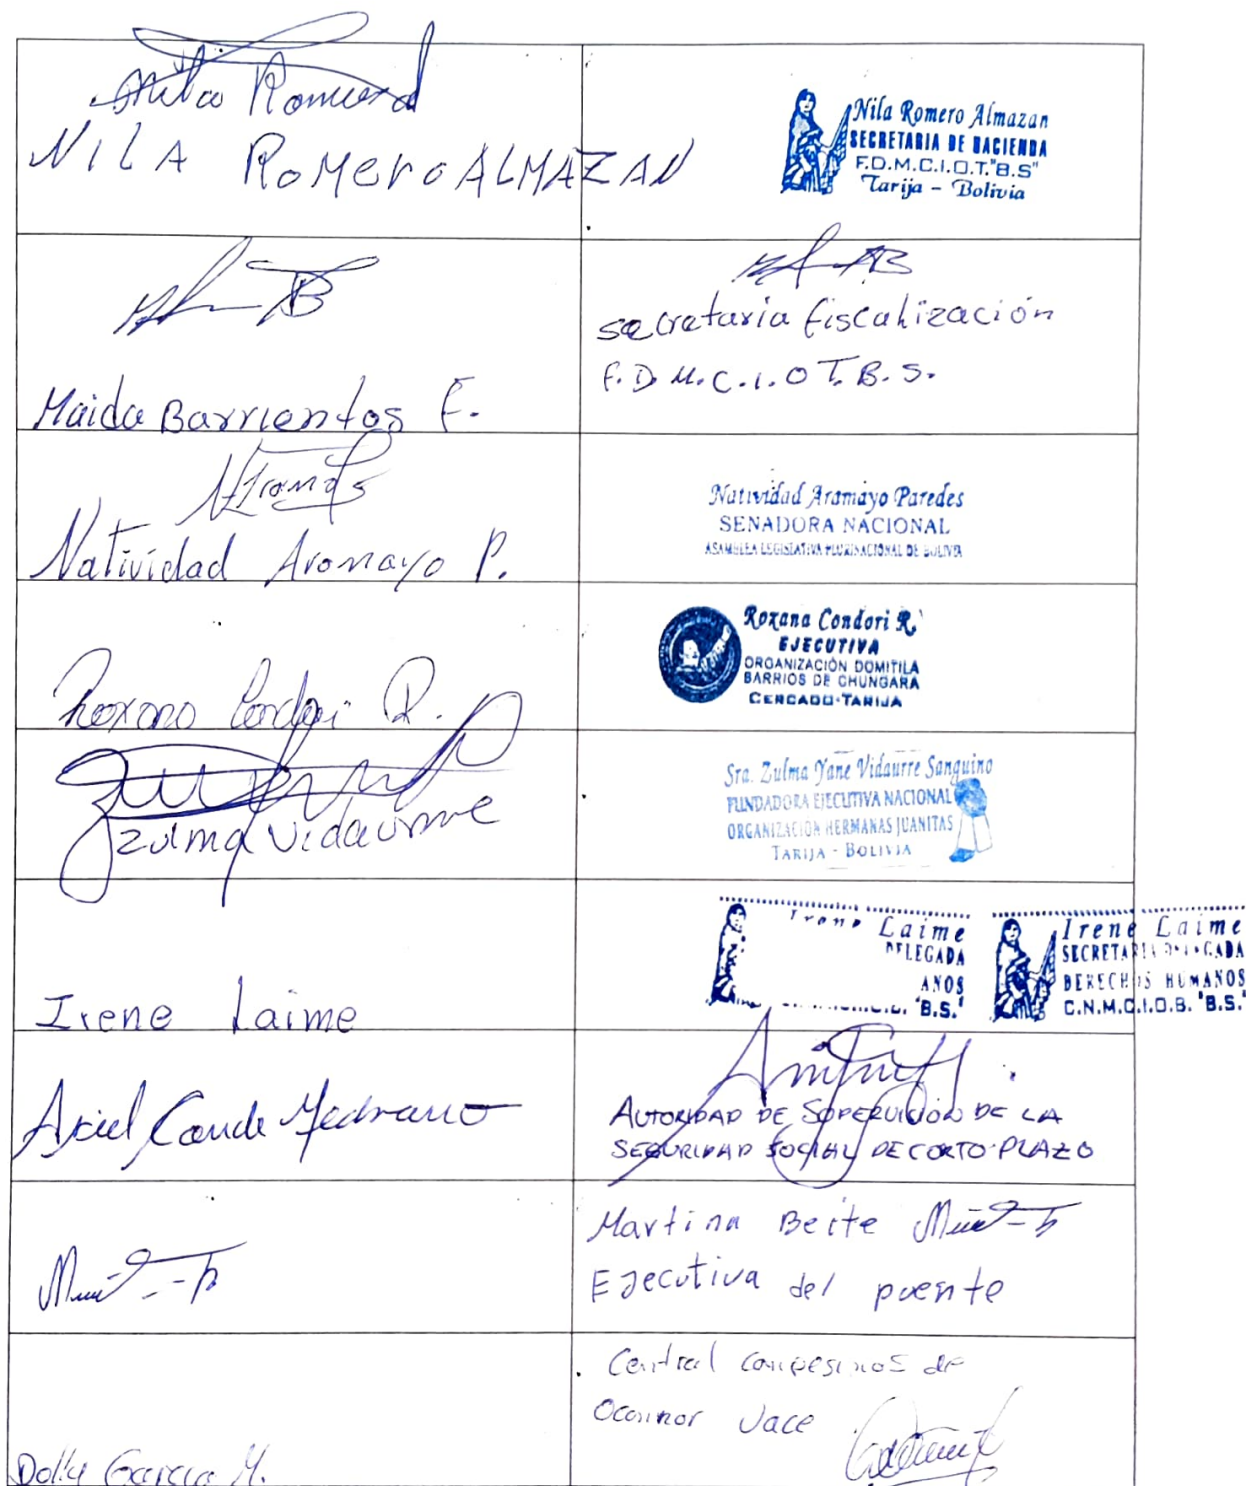 Nila Romero
NILA ROMERO ALMAZAN
Nila Romero Almazan
SECRETARIA DE HACIENDA
F.D.M.C.I.O.T."B.S"
Tarija - Bolivia
Maida Barrientos F.
secretaria fiscalización
F.D.M.C.I.O T.B.S.
Natividad Aramayo P.
Natividad Aramayo Paredes
SENADORA NACIONAL
ASAMBLEA LEGISLATIVA PLURINACIONAL DE BOLIVIA
Roxana Condori R.
Roxana Condori R.
EJECUTIVA
ORGANIZACIÓN DOMITILA
BARRIOS DE CHUNGARA
CERCADO-TARIJA
Zulma Vidaurre
Sra. Zulma Yane Vidaurre Sanguino
FUNDADORA EJECUTIVA NACIONAL
ORGANIZACIÓN HERMANAS JUANITAS
TARIJA - BOLIVIA
Irene Laime
Irene Laime
DELEGADA
ANOS
"B.S."
Irene Laime
SECRETARIA DELEGADA
DERECHOS HUMANOS
C.N.M.C.I.O.B. "B.S."
Ariel Conde Medrano
AUTORIDAD DE SUPERVISIÓN DE LA
SEGURIDAD SOCIAL DE CORTO PLAZO
Martina Beite
Ejecutiva del puente
Central campesinos de
Oconnor
Dolly Garcia M.